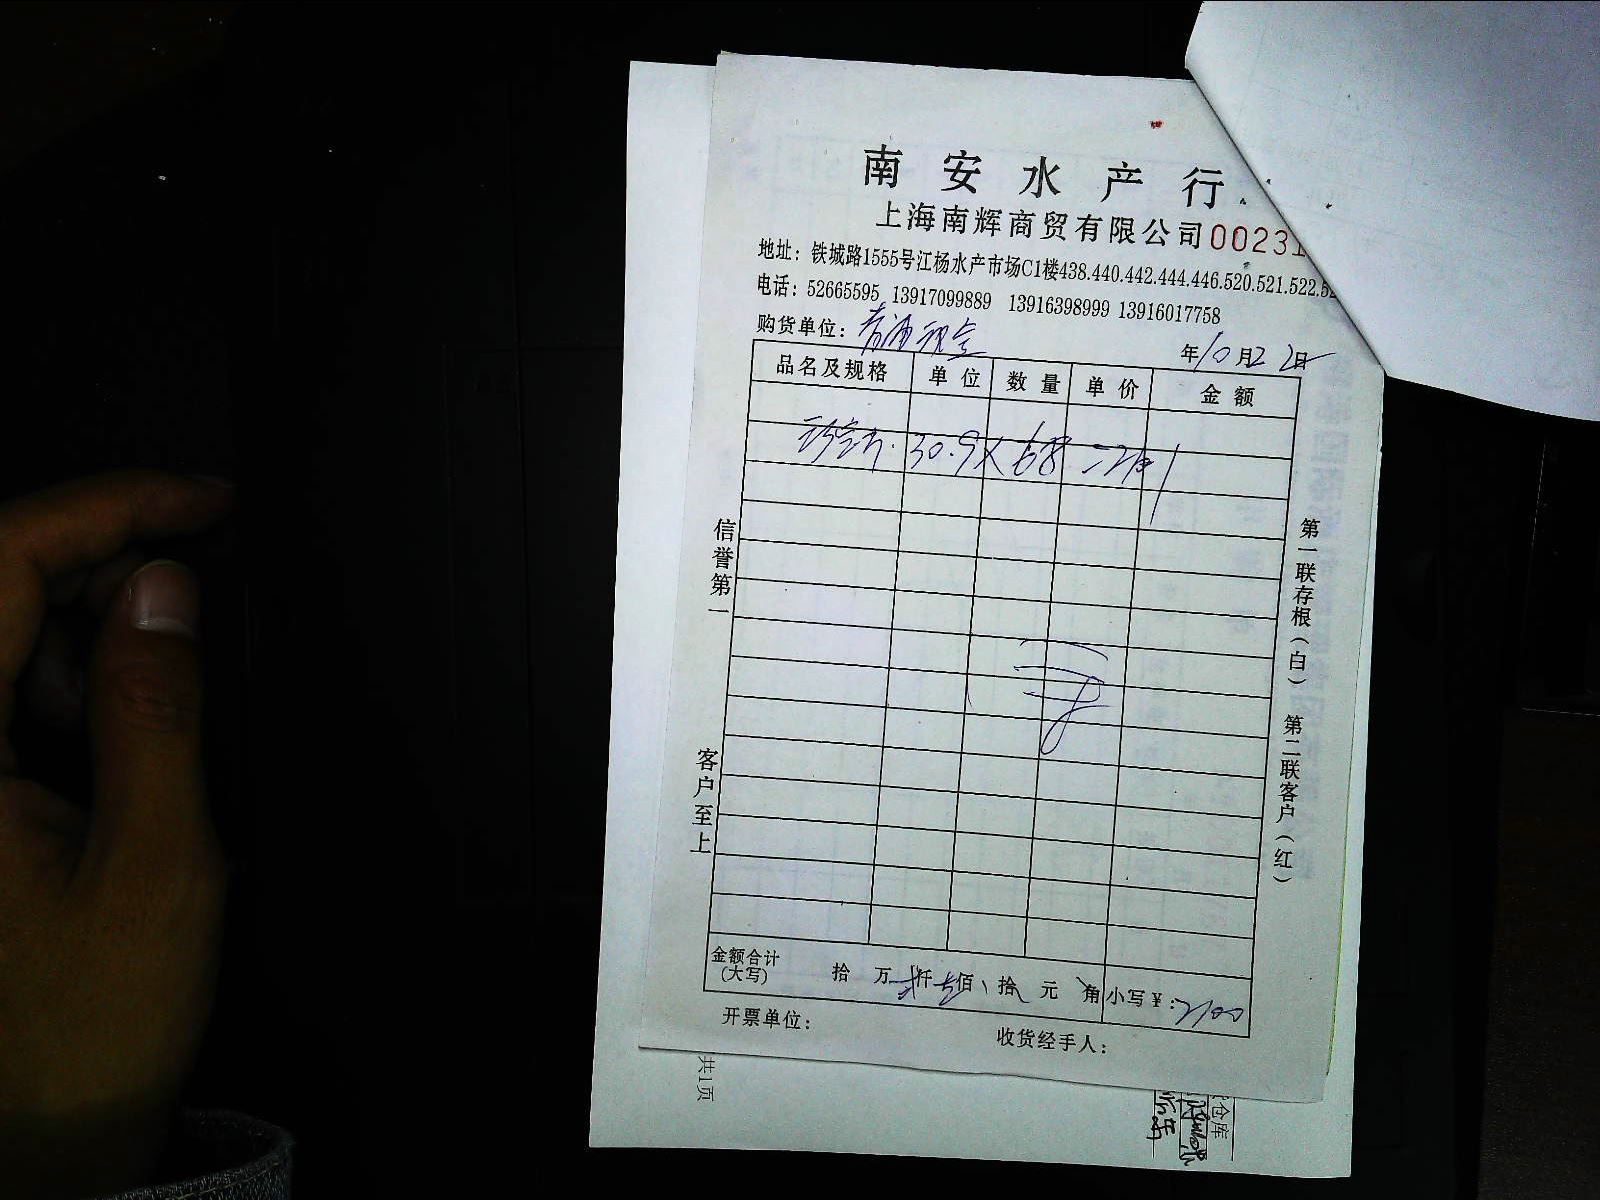 南安水产行
上海南辉商贸有限公司 00231
地址：铁城路1555号江杨水产市场C1楼438.440.442.444.446.520.521.522.52
电话：52665595 13917099889 13916398999 13916017758
购货单位：
年10月22日
品名及规格 单位 数量 单价 金额
30.9X 68
信誉第一
客户至上
第一联存根（白） 第二联客户（红）
金额合计
（大写） 拾 万 贰仟 壹佰 拾 元 角 小写￥：2100
开票单位：
收货经手人：
共1页
仓库